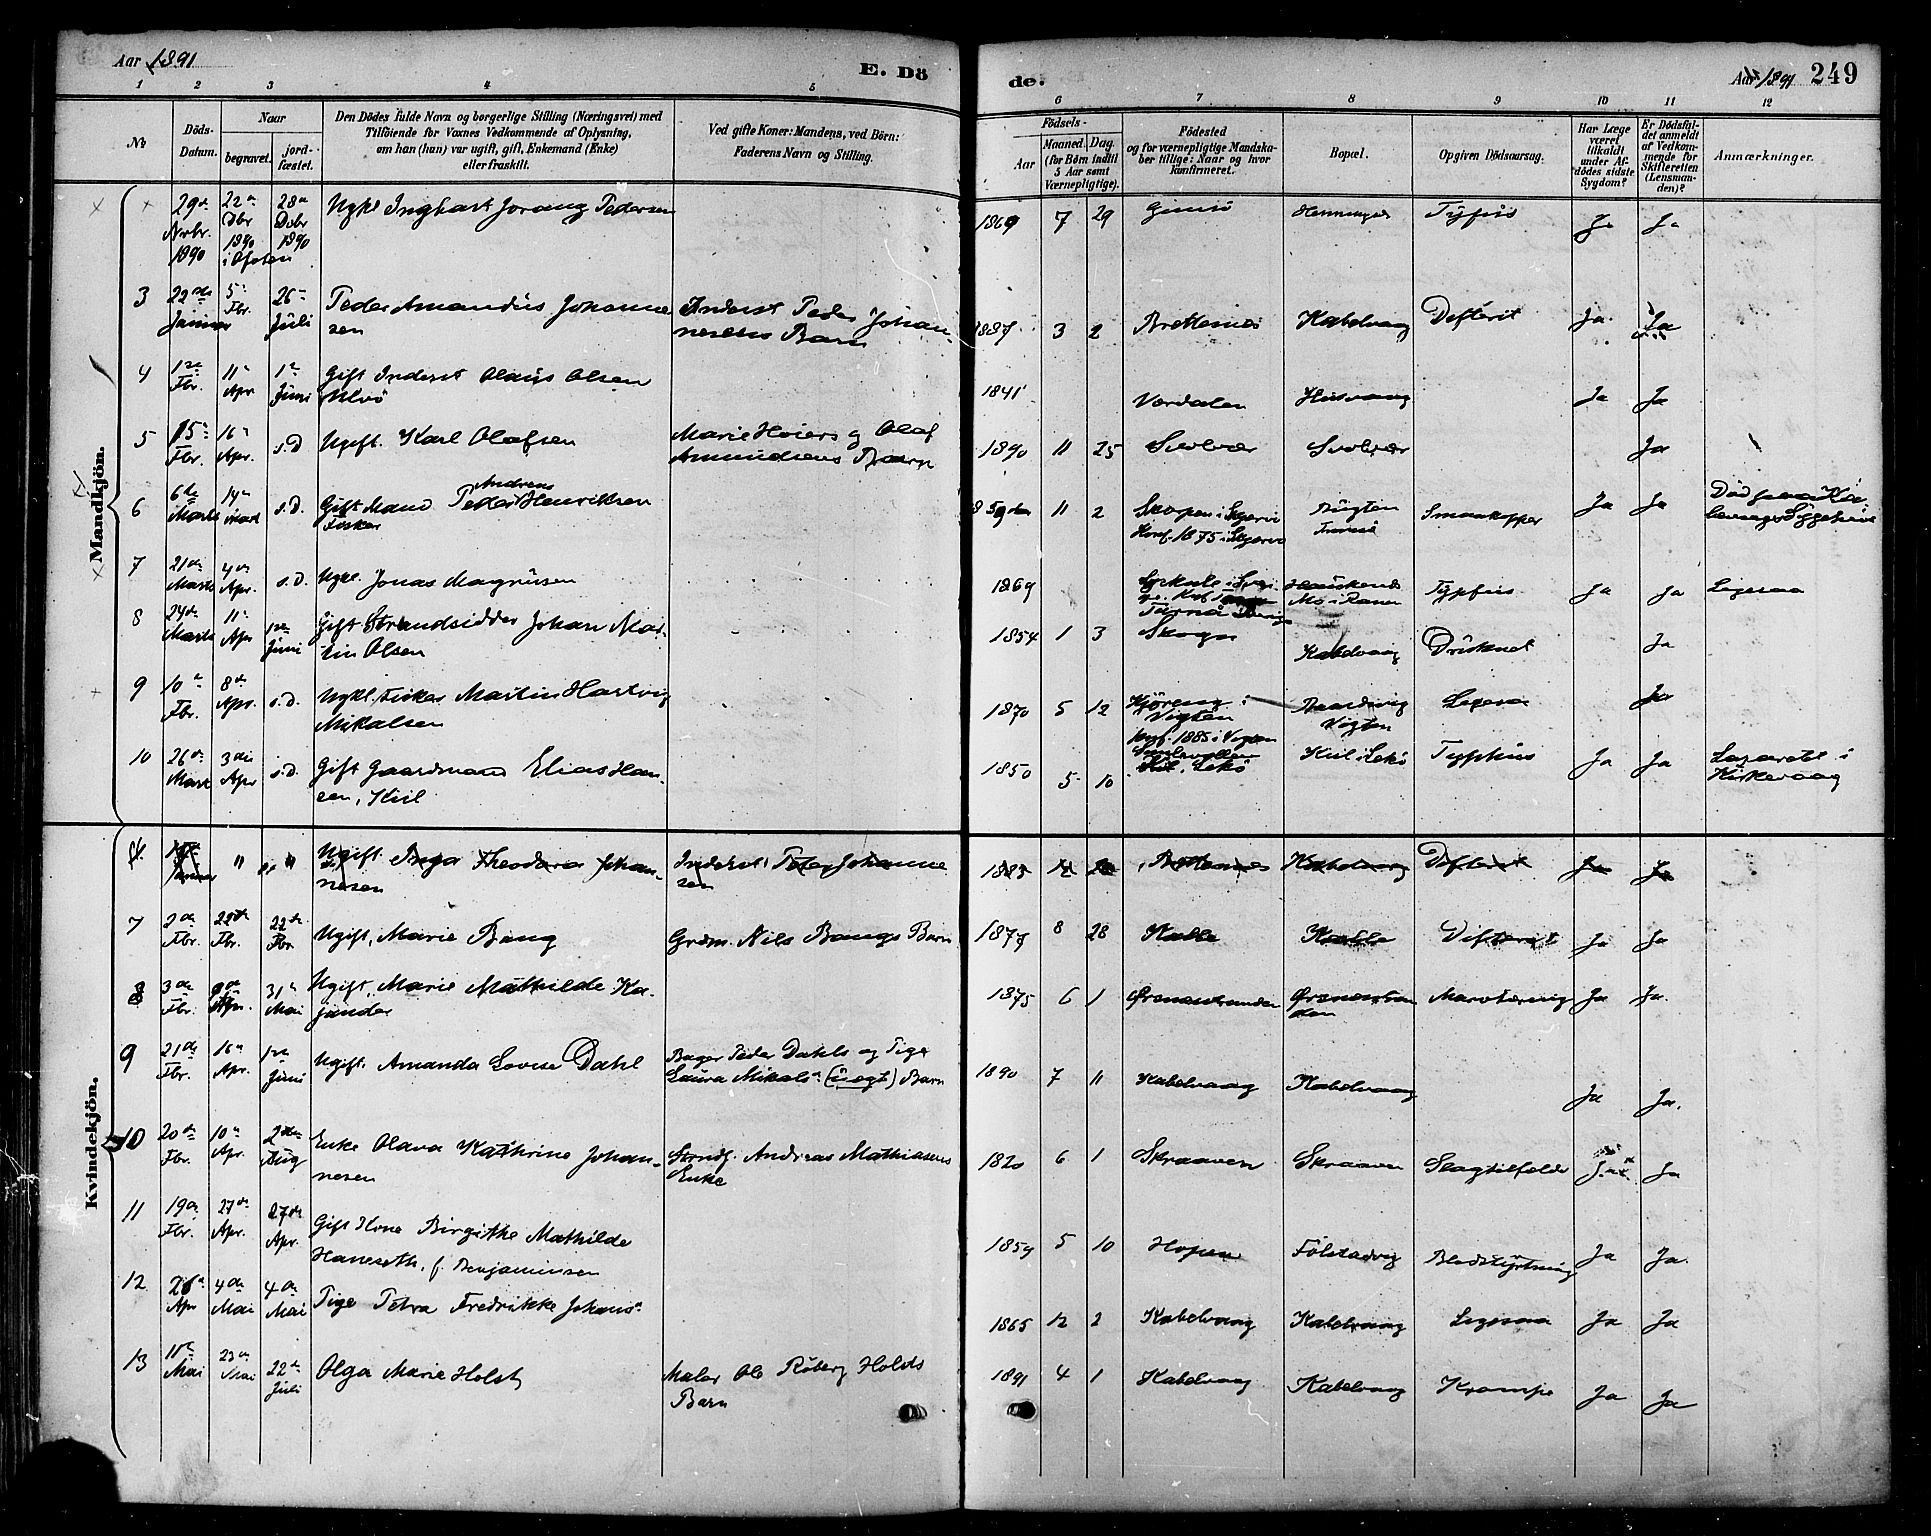 Aar 1891
E. Dö
de.
Aar 1891 249
1 2 3 4 5 6 7 8 9 10 11 12
No
Döds-
Datum.
Naar
begravet.
jord-
fæstet.
Den Dödes fulde Navn og borgerlige Stilling (Næringsvei) med
Tilföiende for Voxnes Vedkommende af Oplysning,
om han (hun) var ugift, gift, Enkemand (Enke)
eller fraskilt.
Ved gifte Koner: Mandens, ved Börn:
Faderens Navn og Stilling.
Födsels-
Aar
Maaned. Dag.
(for Börn indtil
5 Aar samt
Værnepligtige).
Födested
og for værnepligtige Mandska-
ber tillige: Naar og hvor
konfirmeret.
Bopæl.
Opgiven Dödsaarsag.
Har Læge
været
tilkaldt
under Af-
dödes sidste
Sygdom?
Er Dödsfal-
det anmeldt
af Vedkom-
mende for
Skifteretten
(Lensman-
den)?
Anmærkninger.
Mandkjön.
29de Novbr. 1890 22de Dbr 1890 i Ofoten 28de Debr 1890 Ugkl Inghart Pedersen 1869 7 29 Gimsö Typhus Ja Ja
3 22de Januar 5 Fbr. 26 Juli Peder Amandus Johanne
sen Inderst Peder Johan-
nesens Barn 1887 3 2 Brettesnes Kabelvaag Difterit Ja Ja
4 1ste Fbr. 11 Apr. 1ste Juni Gift Inderst Olaus Olsen
1841 Værdalen Ja Ja
5 15 Fbr. 16 Apr. s.D Ugift. Karl Olafsen Marie Hoiers og Olaf
Amundsens Barn 1890 11 25 Svolvær Svolvær Ja
6 6te Marts 14 Mart s.D. Gift Mand Peder Andreas Henriksen
Fisker 11 2 i Skjervö
Konf. 1875 i Skjervö Smaakopper Ja Ja
7 21de Marts 4de Apr. s.D. Ugkl. Jonas Magnusen 1869 Mo i Ranen Typhus Ja Ja Ligesaa
8 24de Marts 11 Apr 1ste Juni Gift Strandsidder Johan Mar-
tin Olsen 1854 1 3 Skogn Kabelvaag Druknet Ja
9 10 Fbr. 8de Apr. s.D. Ugkl. Fisker Martin Hartvig
Mikalsen 1870 5 12 i
Vigten
konf. 1885 i Vigten Vigten Ligesaa Ja
10 26de Mart 3die Apr s.D. Gift Gaardmand Elias Han-
sen, Kiil 1850 5 10 Lekö Kiil i Lekö Typhus Ja Ja Lazarett i
Kirkevaag
Kvindekjön.
" " Ugift Inga Theodora Johan-
nesen Inderst Peder Johanne
sen 1883 12 Brettesnes Kabelvaag Difterit Ja Ja
7 2de Fbr. 22de Fbr. 22de Fbr Ugift, Marie Bang Grdm. Nils Bangs Barn 1877 8 28 Kalle Kalle Difterit Ja Ja
8 3de Fbr. 9de Apr. 31 Mai Ugift, Marie Mathilde Ka-
jander 1875 6 1 Ørsnesstranden Ørsnesstran
den Marvtæring Ja Ja.
9 21de Fbr. 16 Apr. 1ste Juni Ugift. Amanda Lovise Dahl Bager Peder Dahls og Pige
Laura Mikals. (uægt) Barn 1890 7 11 Kabelvaag Kabelvaag Ja Ja.
10 20de Fbr. 10 Apr. 2den Aug Enke Olava Kathrine Johan-
nesen Strndf. Andreas Mathiasens
Enke 1820 6 1 Skraaven Skraaven Slagtilfælde Ja Ja
11 19de Fbr. 27de Apr. 27de Apr. Gift Kone Birgitte Mathilde
Hanseth, f. Benjaminsen 1859 5 10 Hopen Følstadvig Blodstyrtning Ja Ja.
12 26 Apr 4de Mai 4de Mai Pige Petra Fredrikke Johans. 1865 12 2 Kabelvaag Kabelvaag Ligesaa Ja Ja
13 Mai 23de Mai 22de Juli Olga Marie Holst Maler Ole Röberg Holsts
Barn 1891 4 1 Kabelvaag Kabelvaag Krampe Ja Ja